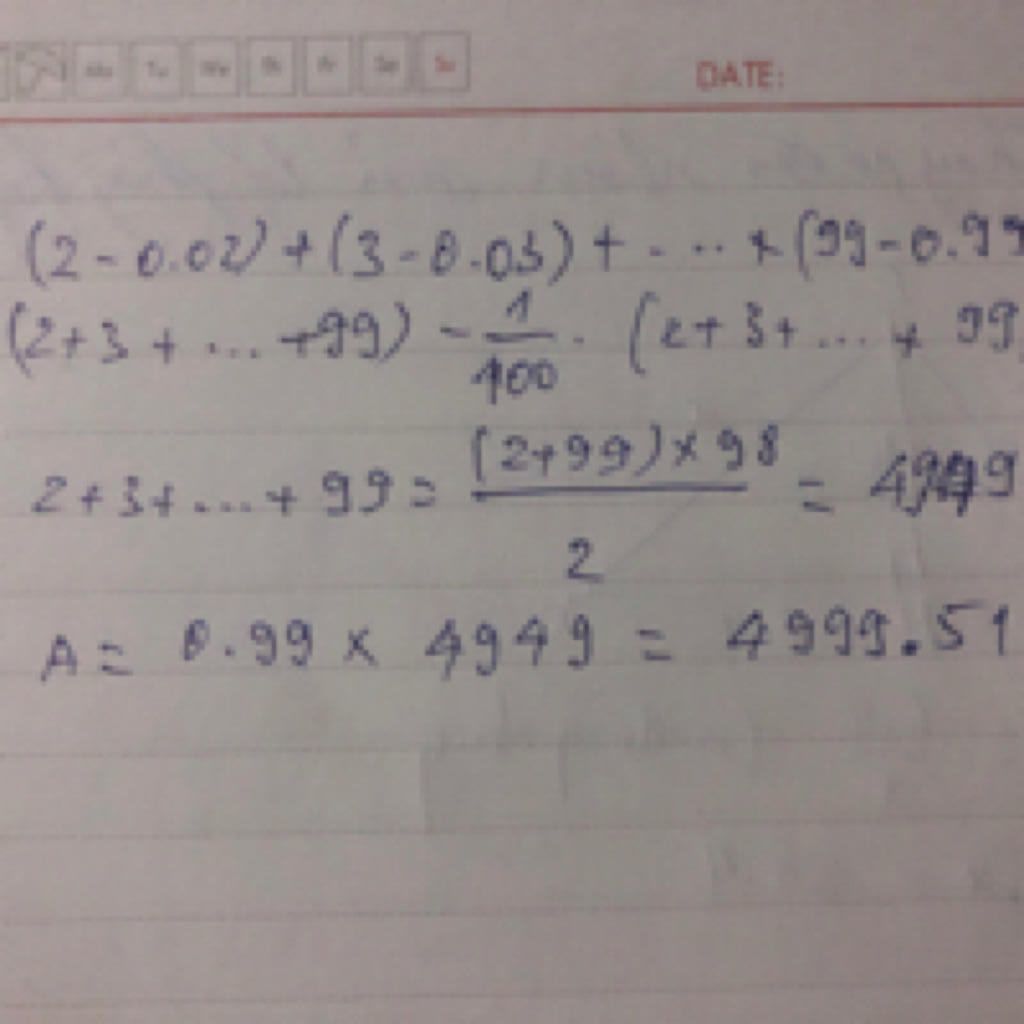 Mo Tu We Th Fr Sa Su DATE:
(2-0.02)+(3-0.03)+...+(99-0.99
(2+3+...+99)-1/100.(2+3+...+99
2+3+...+99=(2+99)×98/2=4949
A=0.99×4949=4999.51